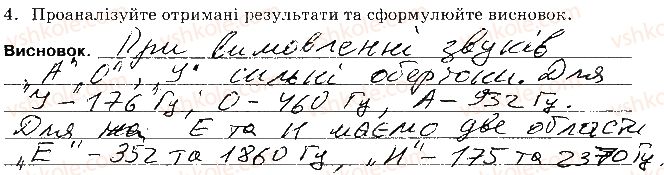 4. Проаналізуйте отримані результати та сформулюйте висновок.
Висновок. При вимовленні звуків
„А", „О", „У" сильні обертони. Для
„У" – 176 Гц, О – 460 Гц, А – 932 Гц.
Для Е та И маємо две области
„Е" – 352 та 1860 Гц, „И" – 175 та 2370 Гц.